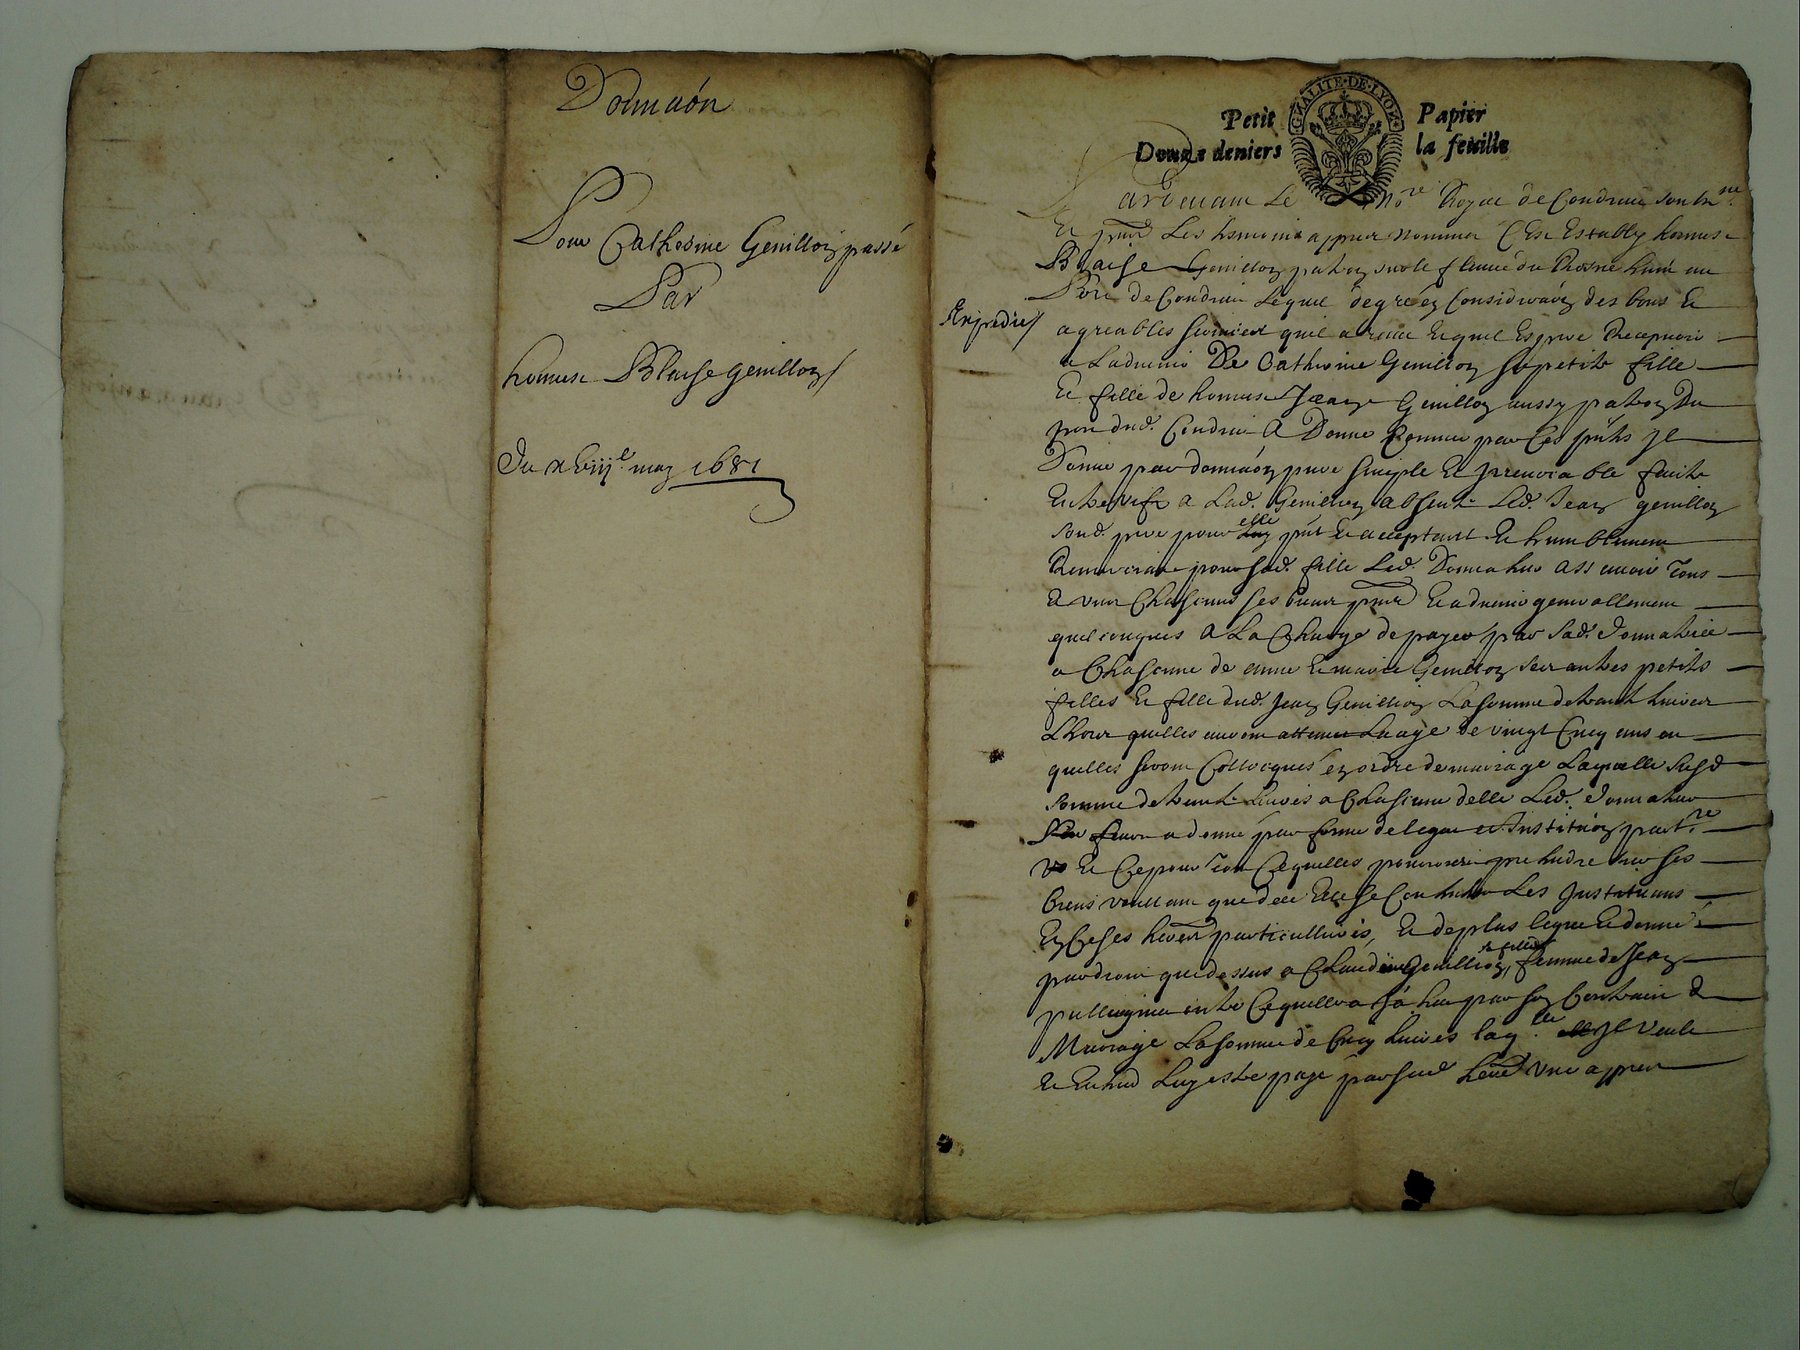 Donnaõn
Pour Catherine Genillon passé
Par
honneste Blaise genillon
Du xviij.e may 1681
GNALITE·DE·LYON
Petit Papier
Douze deniers la feuille
Expedie
Pardevant Le No.re Royal de Condrieu
Et Les nommés C'est Estably honneste
Blaise Genillon patron sur le fleuve du Rosne hant au
Port de Condrieu Lequel de gré en Consideraõn des bons Et
agreables services quil a receu Et quil Espere Recepvoir
a Ladvenir De Catherine Genillon sa petite fille
Et fille de honneste Jean Genillon aussy patron Du
port dud. Condrieu A Donné Comme par Ces pñts Il
Donne par donnaõn pure simple Et irrevocable faicte
Entre vifz a Lad. Genillon absente Led. Jean genillon
Sond. pere pour luy elle pñt Et acceptant Et humblement
Remerciant pour Sad. fille Led. Donnateur assavoir Tous
Et Un Chascuns ses biens Et advenir generallement
quelconques A La Charge de payer par Sad. donnatrice
a Chascune de anne Et marie Genillon Ses autres petites
filles Et fille dud. Jean Genillon La somme de trente livres
Lhors quelles auront atteint Laage de vingt Cinq ans ou
quelles seront Collocquées en ordre de mariage Laquelle Susd
somme de trente livres a Chascune delles Led. donnateur
a donné par forme de legat et Institution part.re
Et Ce pour tout Ce quelles pourroient pretendre sur ses
biens voullant que de ce Elles se Contentent Les Instituans
En Ce Ses heres particullieres, Et de plus legue Et donne
par droit que dessus a Claudine Genillion, sa fille femme de Jean
outre Ce quelle a Ja heu par son Contrat de
Mariage La somme de Cinq livres laq.lle Il Veult
Et Entend Luy estre payé par sad here Un an apres